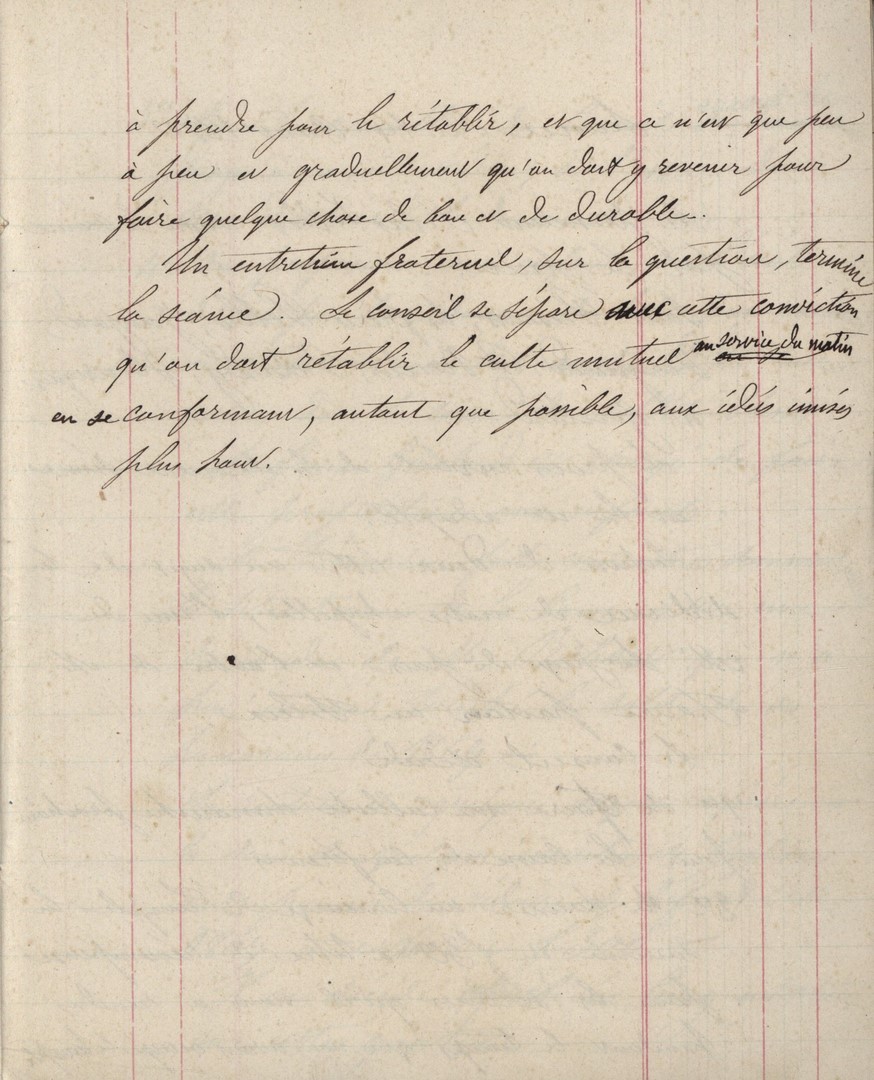 à prendre pour le rétablir, et que ce n'est que peu
à peu et graduellement qu'on doit y revenir pour
faire quelque chose de bon et de durable.
Un entretien fraternel, sur la question, termine
la séance. Le conseil se sépare avec cette conviction
qu'on doit rétablir le culte mutuel au service du matin
en se conformant, autant que possible, aux idées émises
plus haut.